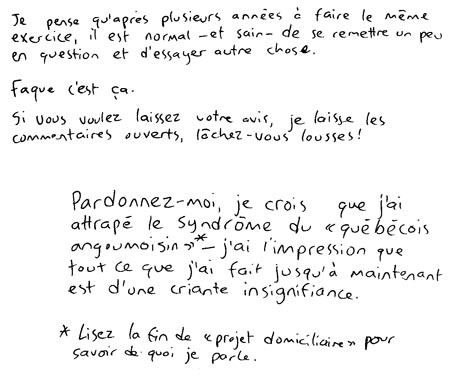 Je pense qu'après plusieurs années à faire le même
exercice, il est normal -et sain- de se remettre un peu
en question et d'essayer autre chose.
Faque c'est ça.
Si vous voulez laissez votre avis, je laisse les
commentaires ouverts, lâchez-vous lousses!
Pardonnez-moi, je crois que j'ai
attrapé le syndrôme du «québécois
angoumoisin»* - j'ai l'impression que
tout ce que j'ai fait jusqu'à maintenant
est d'une criante insignifiance.
* Lisez la fin de «projet domiciliaire» pour
savoir de quoi je parle.